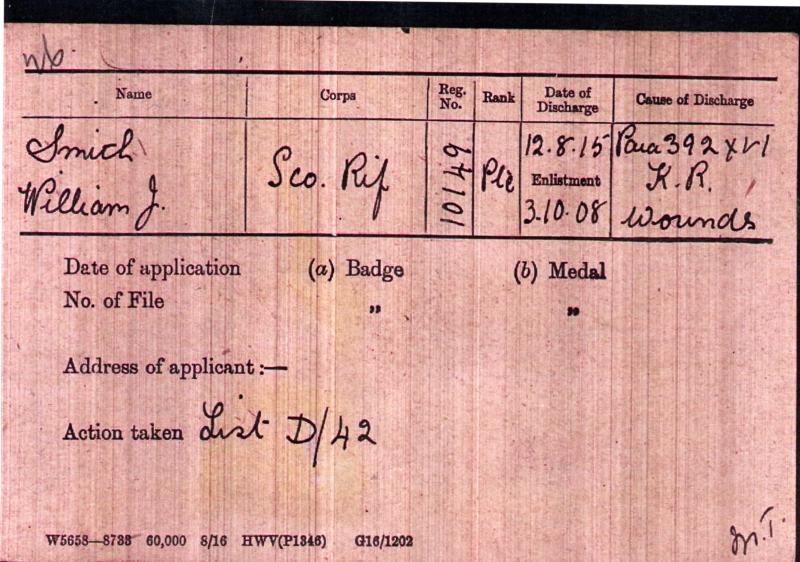 Name Corps Reg. No. Rank Date of Discharge Cause of Discharge
Smith William J. Sco. Rif 10149 Pte 12.8.15 Enlistment 3.10.08 Para 392 XVI K.R. Wounds
Date of application (a) Badge (b) Medal
No. of File „ „
Address of applicant :—
Action taken List D/42
W5658—8733 60,000 8/16 HWV(P1346) G16/1202